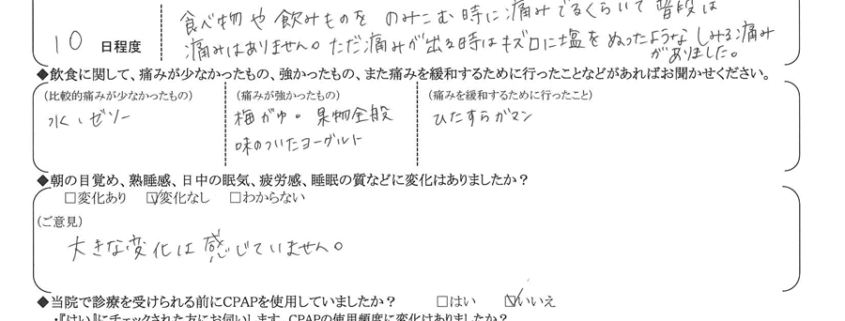 食べ物や飲みものを のみこむ時に痛みでるくらいで 普段は
10 日程度 痛みはありません。ただ痛みが出る時はキズ口に塩をぬったような しみる痛み
がありました。
◆飲食に関して、痛みが少なかったもの、強かったもの、また痛みを緩和するために行ったことなどがあればお聞かせください。
(比較的痛みが少なかったもの) (痛みが強かったもの) (痛みを緩和するために行ったこと)
水、ゼリー 梅がゆ。果物全般 ひたすらガマン
味のついたヨーグルト
◆朝の目覚め、熟睡感、日中の眠気、疲労感、睡眠の質などに変化はありましたか？
□変化あり ☑変化なし □わからない
(ご意見)
大きな変化は感じていません。
◆当院で診療を受けられる前にCPAPを使用していましたか？ □はい ☑いいえ
・『はい』にチェックされた方にお伺いします。CPAPの使用頻度に変化はありましたか？